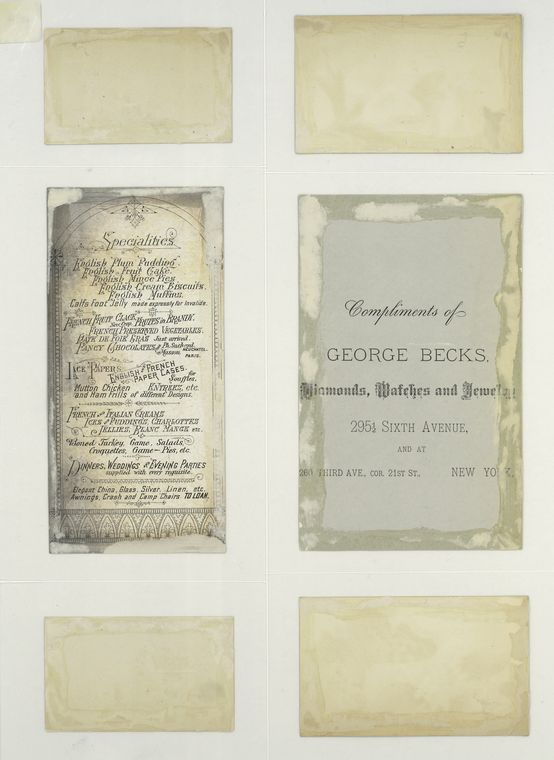 Specialities.
English Plum Pudding.
English Fruit Cake.
English Mince Pies.
English Cream Biscuits.
English Muffins.
Calfs Foot Jelly made expressly for Invalids.
French Fruit Glacé, Fruits in Brandy.
French Preserved Vegetables.
Pate de Foie Gras Just arrived.
Fancy Chocolates Ph. Suchard, Neuchatel.
Massin. Paris.
Lace Papers. English and French Paper Cases. for Souffles,
Mutton Chicken Entrees, etc.
and Ham Frills of different Designs.
French and Italian Creams
Ices and Puddings, Charlottes
Jellies, Blanc Mange etc.
Boned Turkey, Game, Salads,
Croquettes, Game-Pies, etc.
Dinners, Weddings and Evening Parties
supplied with every requisite.
Elegant China, Glass, Silver, Linen, etc.
Awnings, Crash and Camp Chairs TO LOAN.
Compliments of
GEORGE BECKS,
Diamonds, Watches and Jewelry
295½ SIXTH AVENUE,
AND AT
260 THIRD AVE., COR. 21ST ST., NEW YORK.